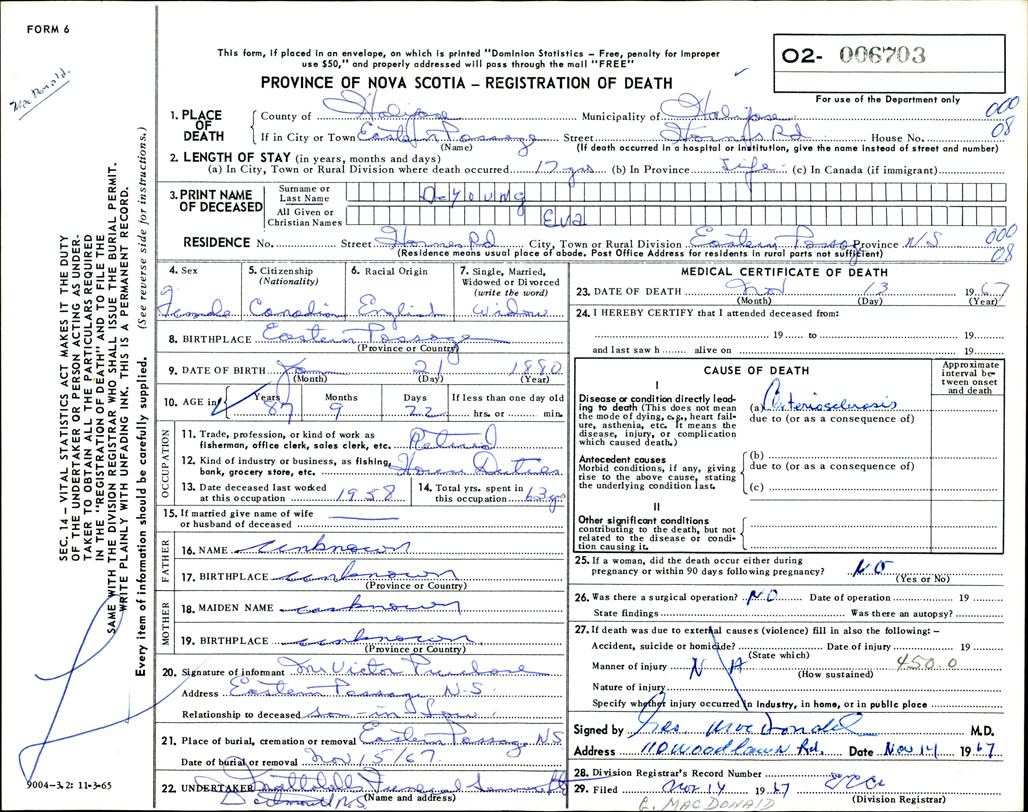 FORM 6
MacDonald.
This form, if placed in an envelope, on which is printed "Dominion Statistics – Free, penalty for improper
use $50," and properly addressed will pass through the mail "FREE"
PROVINCE OF NOVA SCOTIA – REGISTRATION OF DEATH
O2- 006703
For use of the Department only
SEC. 14 – VITAL STATISTICS ACT MAKES IT THE DUTY
OF THE UNDERTAKER OR PERSON ACTING AS UNDER-
TAKER TO OBTAIN ALL THE PARTICULARS REQUIRED
IN THE "REGISTRATION OF DEATH" AND TO FILE THE
SAME WITH THE DIVISION REGISTRAR WHO SHALL ISSUE THE BURIAL PERMIT.
WRITE PLAINLY WITH UNFADING INK. THIS IS A PERMANENT RECORD.
Every item of information should be carefully supplied. (See reverse side for instructions.)
1. PLACE OF DEATH
County of Halifax Municipality of Halifax 000
If in City or Town Eastern Passage Street Hornes Rd House No. 08
(Name) (If death occurred in a hospital or institution, give the name instead of street and number)
2. LENGTH OF STAY (in years, months and days)
(a) In City, Town or Rural Division where death occurred 17 yrs (b) In Province Life (c) In Canada (if immigrant)
3. PRINT NAME OF DECEASED
Surname or Last Name DeYoung
All Given or Christian Names Eva
RESIDENCE No. Street Hornes Rd City, Town or Rural Division Eastern Passage Province N/S 000
(Residence means usual place of abode. Post Office Address for residents in rural parts not sufficient) 08
4. Sex 5. Citizenship (Nationality) 6. Racial Origin 7. Single, Married, Widowed or Divorced (write the word)
Female Canadian English Widow
8. BIRTHPLACE Eastern Passage
(Province or Country)
9. DATE OF BIRTH Jan 21 1880
(Month) (Day) (Year)
10. AGE in Years Months Days If less than one day old
87 9 22 hrs. or min.
OCCUPATION
11. Trade, profession, or kind of work as
fisherman, office clerk, sales clerk, etc. Retired
12. Kind of industry or business, as fishing,
bank, grocery store, etc. House Duties
13. Date deceased last worked
at this occupation 1958
14. Total yrs. spent in
this occupation 63 yrs
15. If married give name of wife
or husband of deceased
FATHER
16. NAME unknown
17. BIRTHPLACE unknown
(Province or Country)
MOTHER
18. MAIDEN NAME unknown
19. BIRTHPLACE unknown
(Province or Country)
20. Signature of informant Mr Victor
Address Eastern Passage N.S.
Relationship to deceased son-in law
21. Place of burial, cremation or removal Eastern Passage N.S
Date of burial or removal Nov 15/67.
22. UNDERTAKER Funeral
Dartmouth N.S. (Name and address)
9004–3.2: 11-3-65
MEDICAL CERTIFICATE OF DEATH
23. DATE OF DEATH Nov 13 1967
(Month) (Day) (Year)
24. I HEREBY CERTIFY that I attended deceased from:
19 to 19
and last saw h alive on 19
CAUSE OF DEATH
Approximate interval between onset and death
I
Disease or condition directly lead-
ing to death (This does not mean
the mode of dying, e.g., heart fail-
ure, asthenia, etc. It means the
disease, injury, or complication
which caused death.)
(a) Arteriosclerosis
due to (or as a consequence of)
Antecedent causes
Morbid conditions, if any, giving
rise to the above cause, stating
the underlying condition last.
(b)
due to (or as a consequence of)
(c)
II
Other significant conditions
contributing to the death, but not
related to the disease or condi-
tion causing it.
25. If a woman, did the death occur either during
pregnancy or within 90 days following pregnancy? NO
(Yes or No)
26. Was there a surgical operation? NO Date of operation 19
State findings Was there an autopsy?
27. If death was due to external causes (violence) fill in also the following: –
Accident, suicide or homicide? Date of injury 19
(State which)
Manner of injury N A 450.0
(How sustained)
Nature of injury
Specify whether injury occurred in industry, in home, or in public place
Signed by MacDonald M.D.
Address 110 Woodlawn Rd. Date Nov 14 1967
28. Division Registrar's Record Number
29. Filed Nov 14 1967
(Division Registrar)
E. MACDONALD